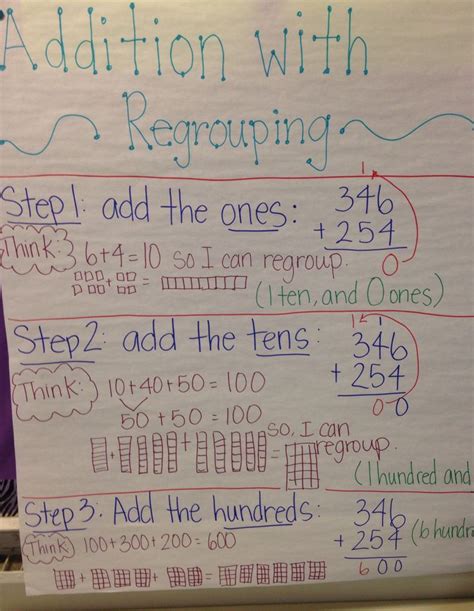 Addition with
Regrouping
Step 1: add the ones:
1
346
+ 254
0
Think:
6+4=10 so I can regroup.
+ =
(1 ten, and 0 ones)
Step 2: add the tens:
1 1
346
+ 254
00
Think:
10+40+50=100
50 +50=100
+ + =
so, I can
regroup.
(1 hundred and
Step 3. Add the hundreds:
346
+ 254
600
(6 hundr
Think:
100+300+200=600
+ + =